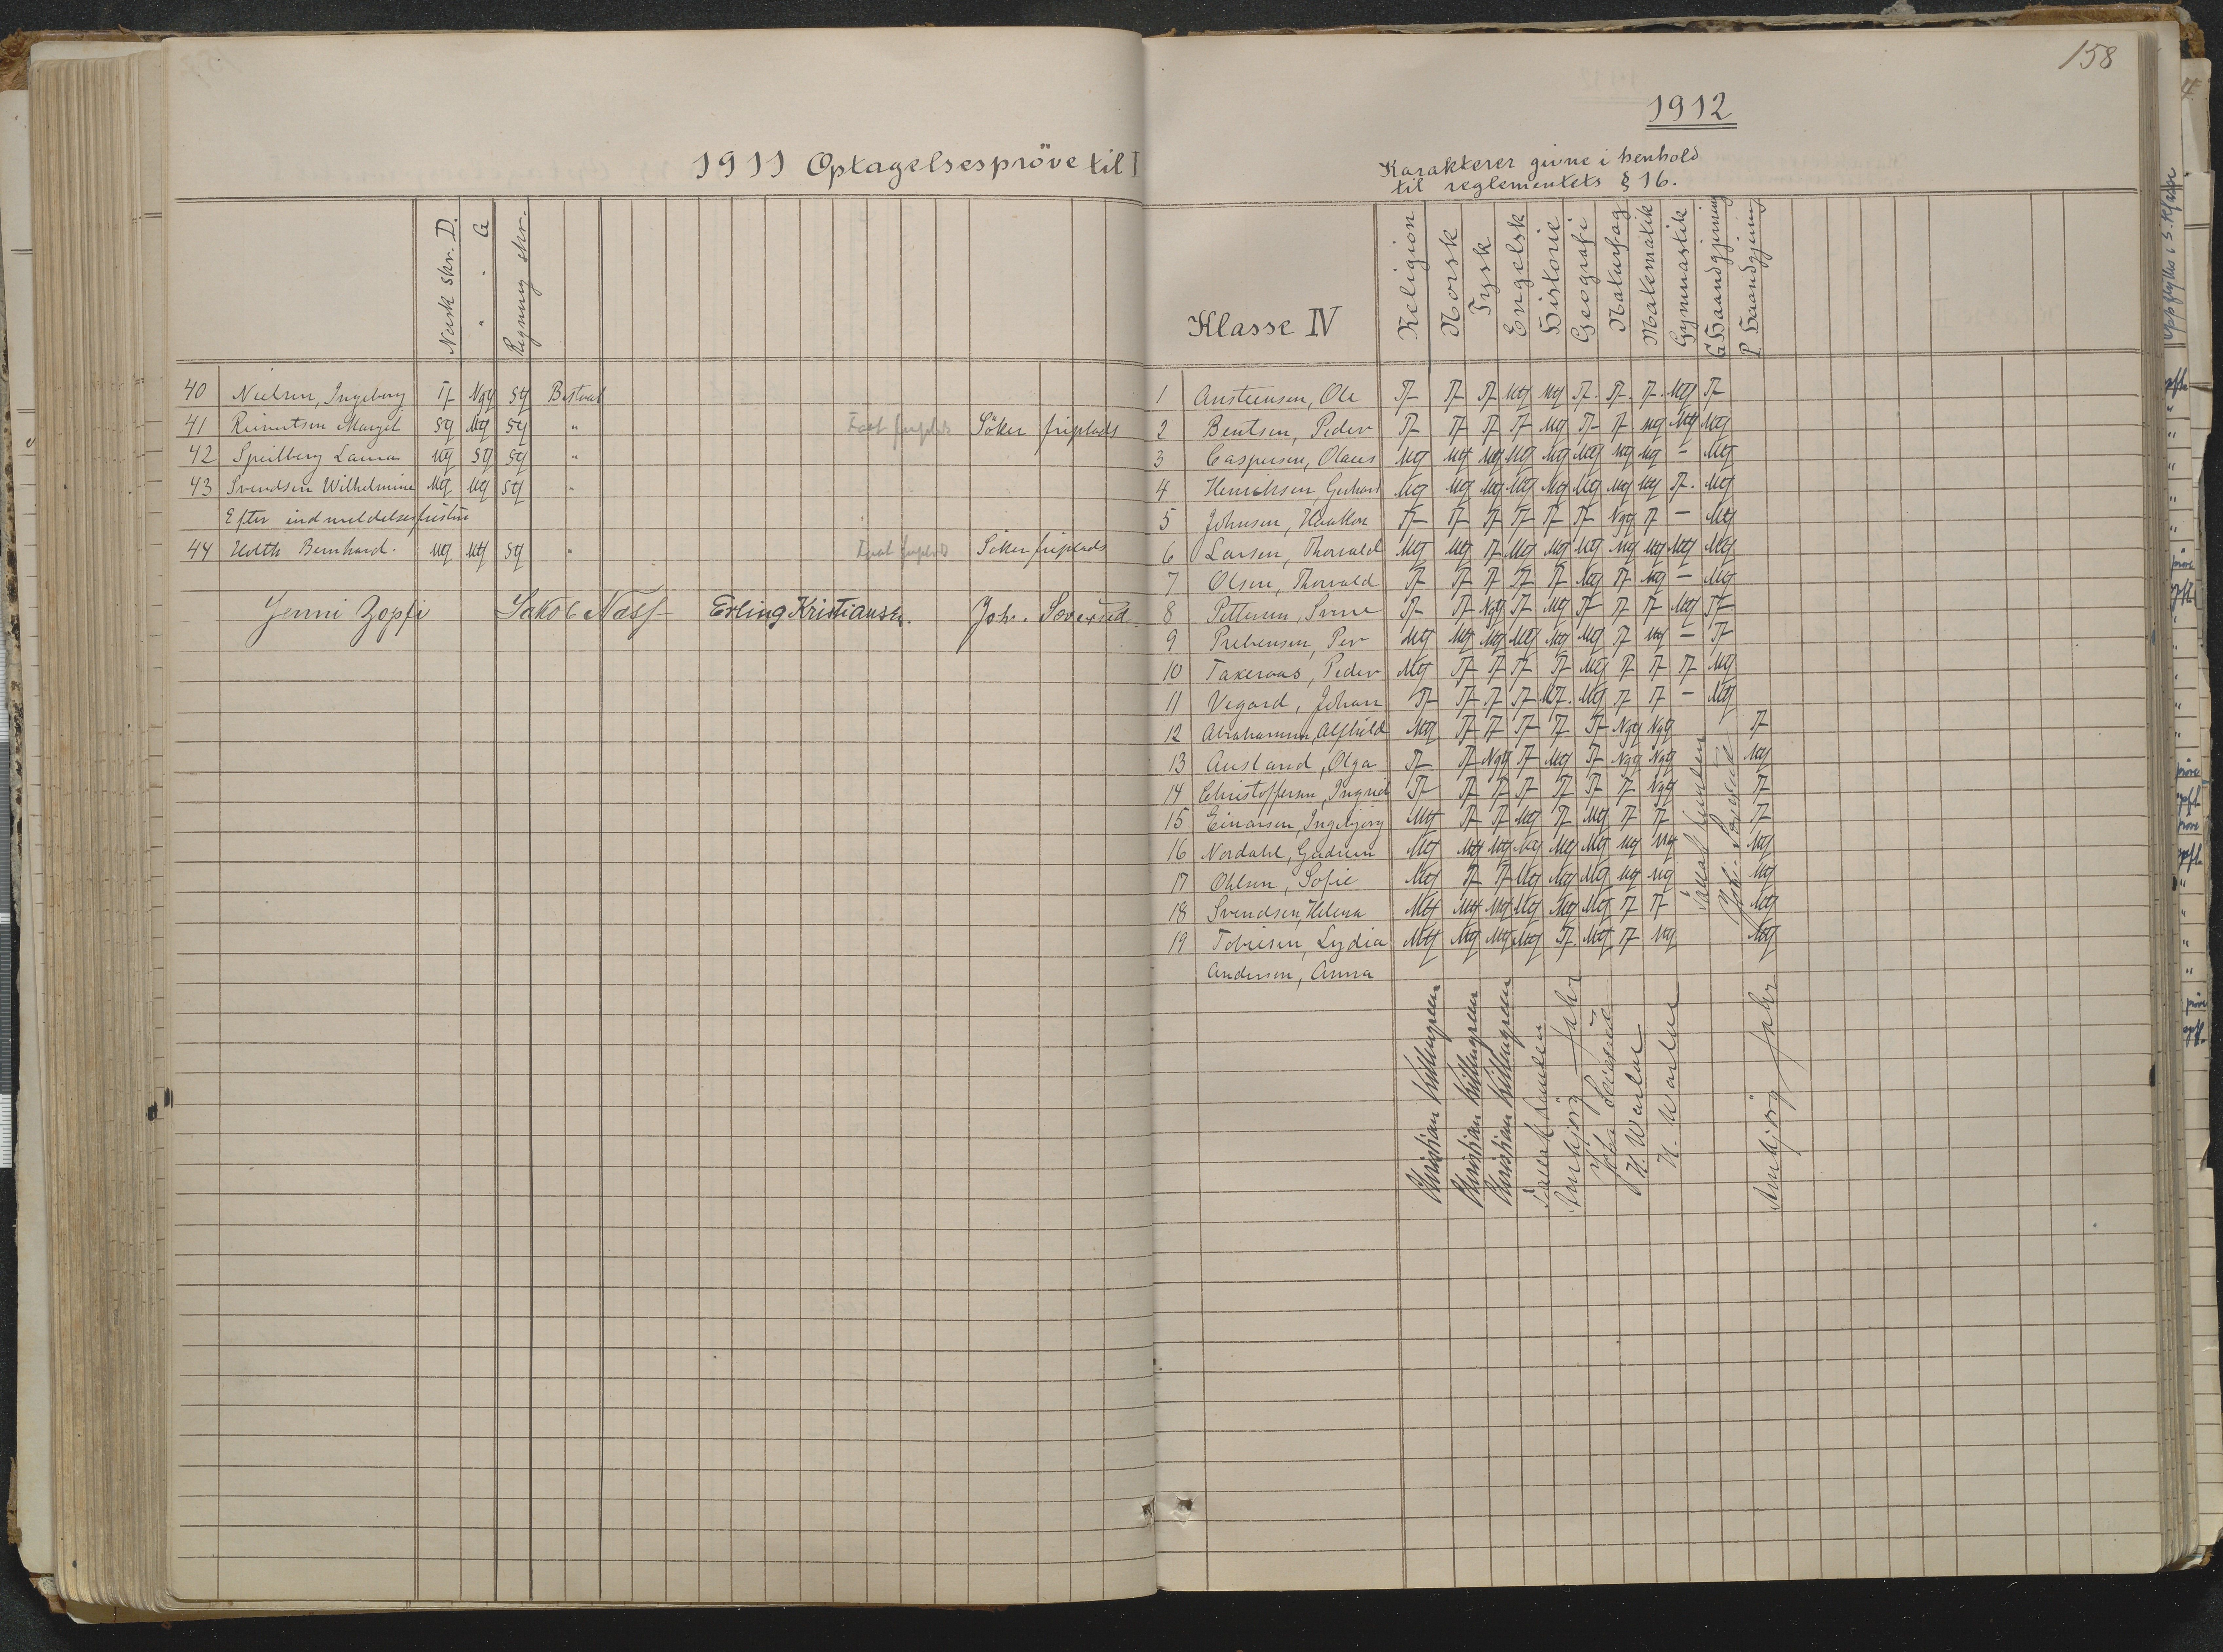 1911 Optagelsespröve til I
Norsk skr. D.
" - G
Regning skr.
40 Nielsen, Ingeborg Tf Ngf Sg Bestaat
41 Reinertsen Margit Sg Mg Sg " Faat friplads Söker friplads
42 Speilberg Laura Mg Sg Sg "
43 Svendsen Wilhelmine Mg Mg Sg "
Efter indmeldelsesfristen
44 Holth Bernhard. Mg Mg Sg " Faat friplads Söker friplads
Jenni Zopfi Jakob Næss Erling Kristiansen. Joh. Soversed
158
1912
Karakterer givne i henhold
til reglementets § 16.
Klasse IV
Religion
Norsk
Tysk
Engelsk
Historie
Geografi
Naturfag
Matematik
Gymnastik
G. Haandgjerning
P. Haandgjerning
1 Austeensen, Ole Tf Tf Tf Mg Mg Tf. Tf. Tf. Mg Tf
2 Bentsen, Peder Tf Tf Tf Tf Mg Tf Tf Mg Mg Mg
3 Caspersen, Olaus Mg Mg Mg Mg Mg Mg Mg Mg – Mg
4 Henriksen, Gerhard Mg Mg Mg Mg Mg Mg Mg Mg Tf. Mg
5 Johnsen, Haakon Tf Tf Tf Tf Tf Tf Ngf Tf – Mg
6 Larsen, Thorvald Mg Mg Tf Mg Mg Mg Mg Mg Mg Mg
7 Olsen, Thorvald Tf Tf Tf Tf Tf Mg Tf Mg – Mg
8 Pettersen, Sverre Tf Tf Ngf Tf Mg Tf Tf Tf Mg Tf
9 Prebensen, Per Mg Mg Mg Mg Mg Mg Tf Mg – Tf
10 Takeraas, Peder Mg Tf Tf Tf Tf Mg Tf Tf Tf Mg
11 Vegard, Johan Tf Tf Tf Tf Mg. Mg Tf Tf – Mg
12 Abrahamsen, Alfhild Mg Tf Tf Tf Tf Tf Ngf Ngf Tf
13 Ausland, Olga Tf Tf Ngf Tf Mg Tf Ngf Ngf Mg
14 Christoffersen, Ingrid Tf Tf Tf Tf Tf Tf Tf Ngf Tf
15 Einarsen, Ingebjørg Mg Tf Tf Mg Tf Mg Tf Tf Tf
16 Nordahl, Gudrun Mg Mg Mg Mg Mg Mg Mg Mg Mg
17 Ohlsen, Sofie Mg Tf Tf Mg Mg Mg Mg Mg Mg
18 Svendsen, Helena Mg Mg Mg Mg Mg Mg Tf Tf Mg
19 Tobiesen, Lydia Mg Mg Mg Mg Tf. Mg Tf Mg Mg
Andersen, Anna
Kristian Killengreen
Kristian Killengreen
Kristian Killengreen
Annbjørg
H. Warlue
H. Warlue
Annbjørg